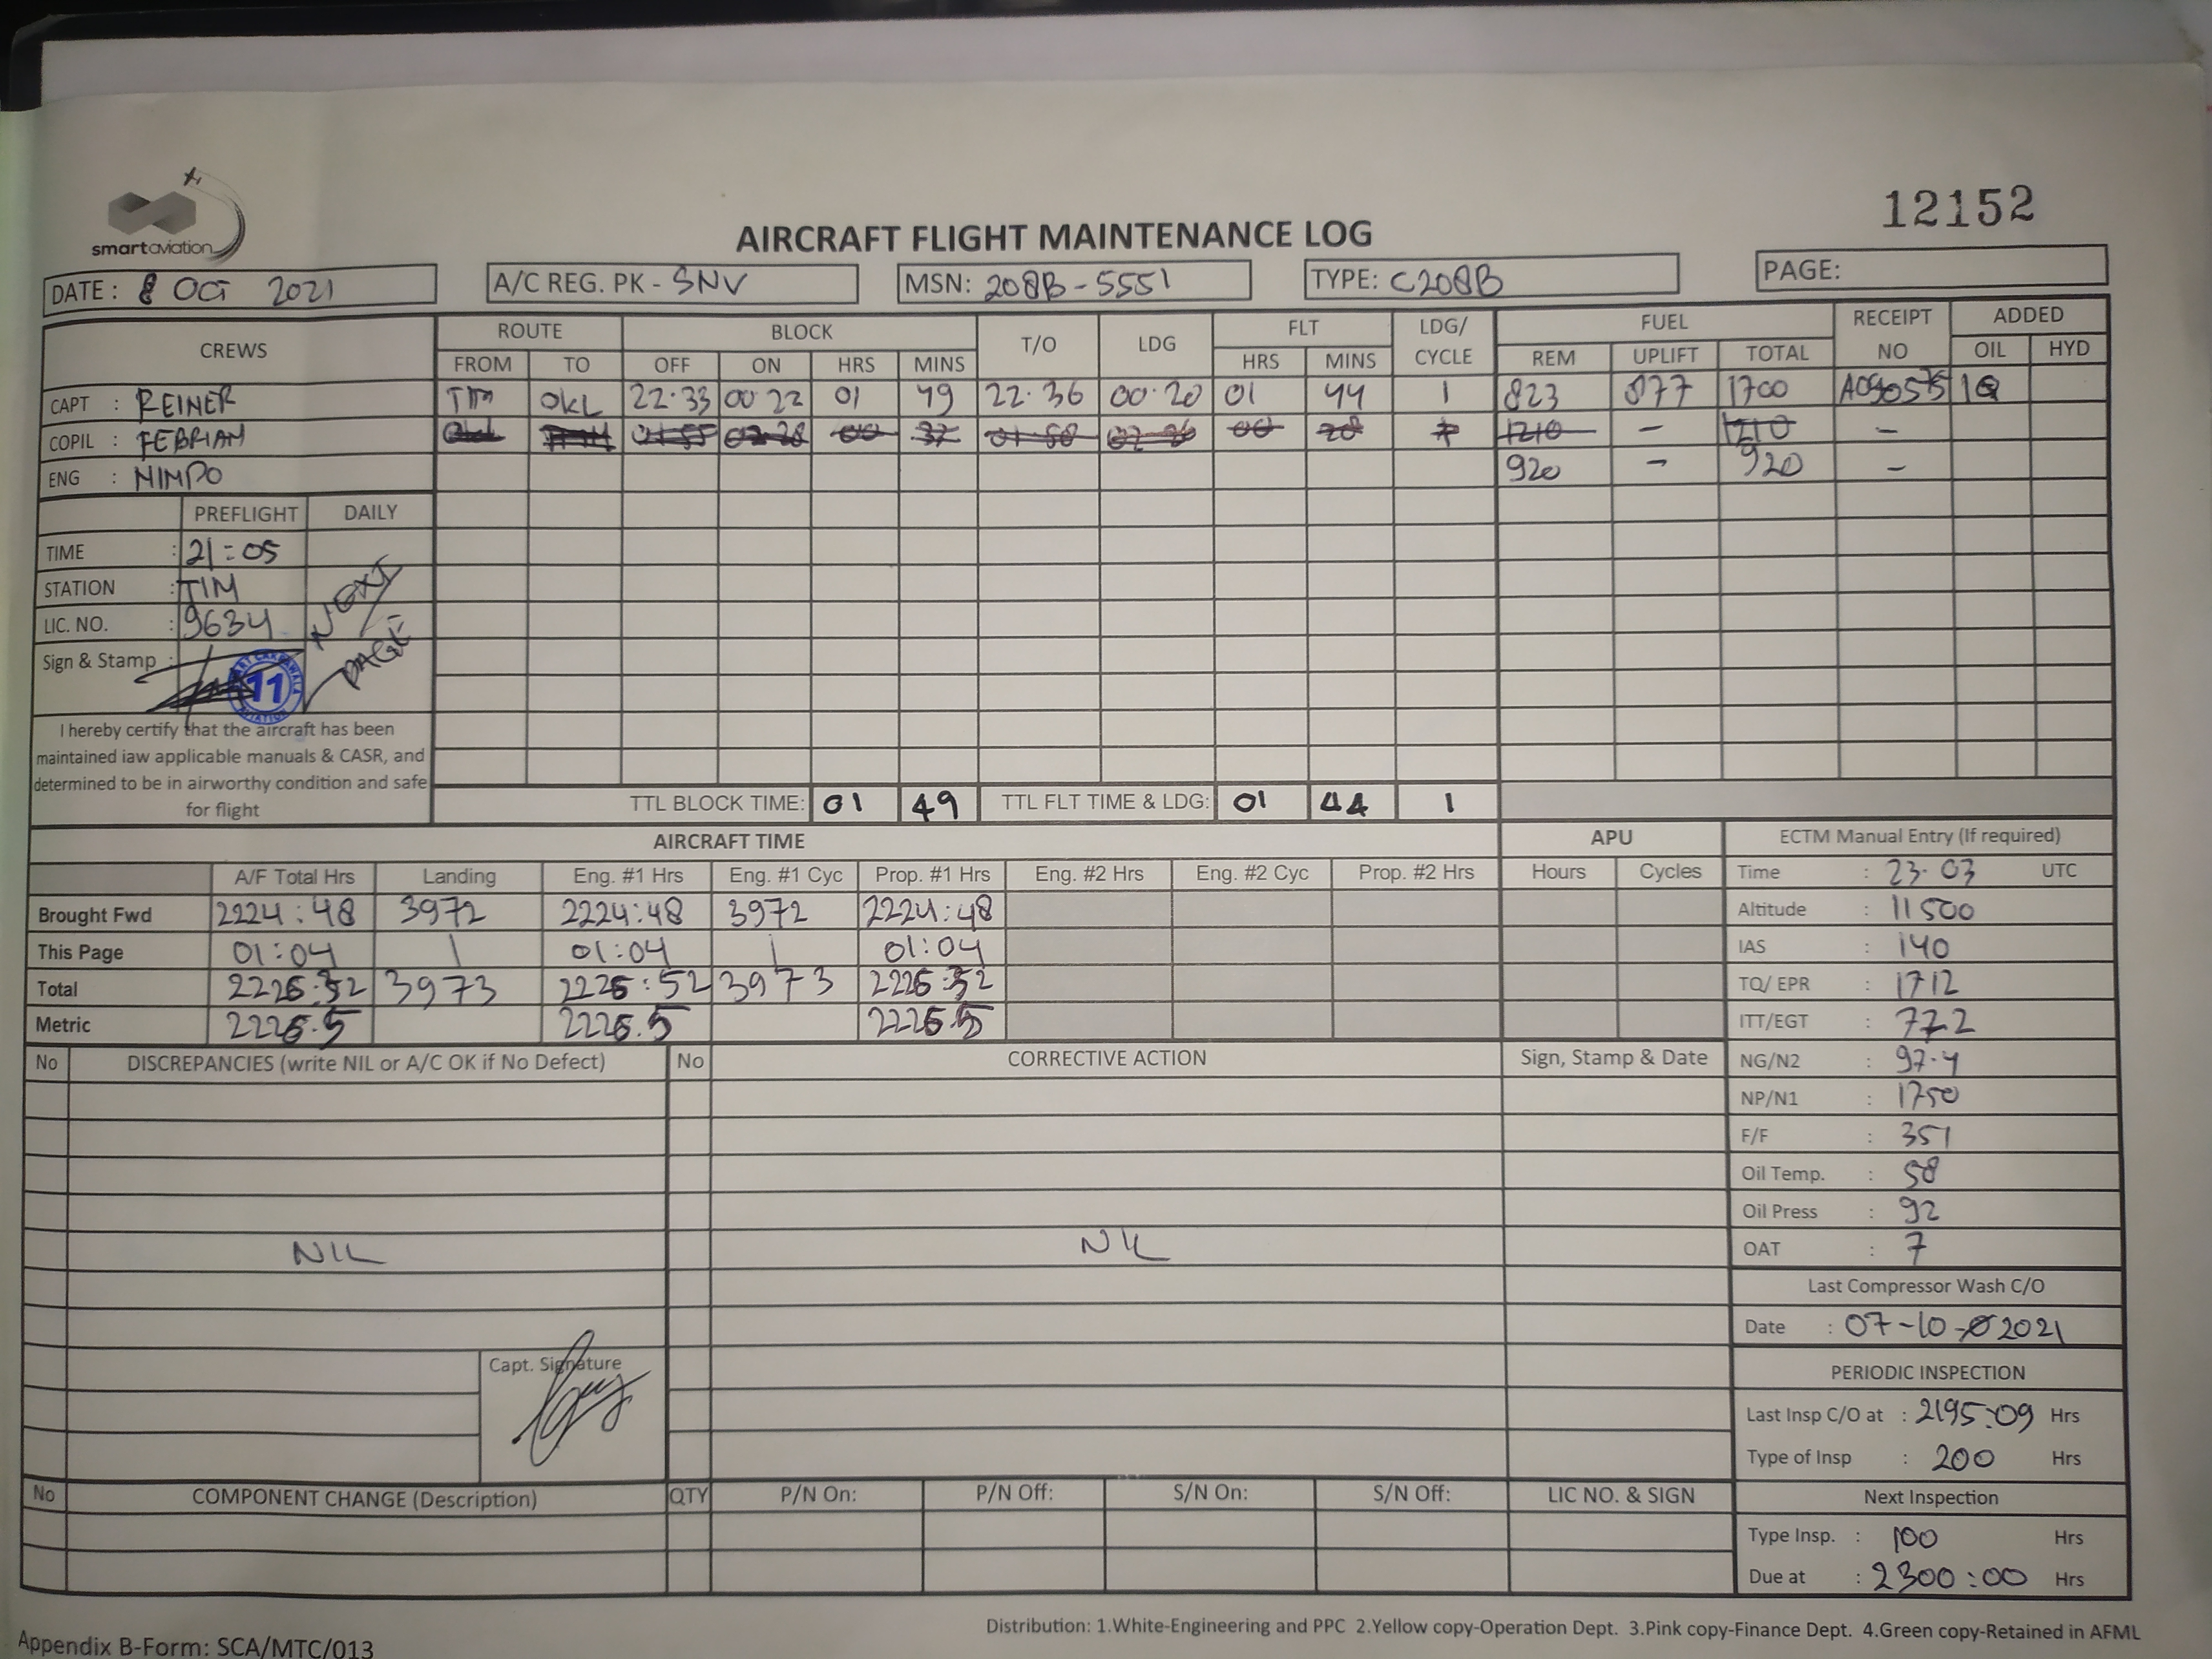 smartaviation
12152
AIRCRAFT FLIGHT MAINTENANCE LOG
DATE : 8 OCT 2021
A/C REG. PK - SNV
MSN: 208B-5551
TYPE: C208B
PAGE:
CREWS ROUTE BLOCK T/O LDG FLT LDG/ CYCLE FUEL RECEIPT NO ADDED
FROM TO OFF ON HRS MINS HRS MINS REM UPLIFT TOTAL OIL HYD
CAPT : REINER TIM OKL 22.33 00.22 01 49 22.36 00.20 01 44 1 823 877 1700 1Q
COPIL : FEBRIAN 01 55 00 37 01 58 00 28 1210 - 1210 -
ENG : NIMPO 920 - 920 -
PREFLIGHT DAILY
TIME : 21:05
STATION : TIM
LIC. NO. : 9634
NEXT
PAGE
Sign & Stamp :
11
AVIATION
I hereby certify that the aircraft has been
maintained iaw applicable manuals & CASR, and
determined to be in airworthy condition and safe
for flight
TTL BLOCK TIME: 01 49 TTL FLT TIME & LDG: 01 44 1
AIRCRAFT TIME APU ECTM Manual Entry (If required)
A/F Total Hrs Landing Eng. #1 Hrs Eng. #1 Cyc Prop. #1 Hrs Eng. #2 Hrs Eng. #2 Cyc Prop. #2 Hrs Hours Cycles
Time : 23.03 UTC
Brought Fwd 2224:48 3972 2224:48 3972 2224:48
Altitude : 11500
This Page 01:04 1 01:04 1 01:04
IAS : 140
Total 2226:32 3973 2226:52 3973 2226:32
TQ/ EPR : 1712
Metric 2226.5 2226.5 2226.5
ITT/EGT : 772
No DISCREPANCIES (write NIL or A/C OK if No Defect) No CORRECTIVE ACTION Sign, Stamp & Date
NG/N2 : 97.4
NP/N1 : 1750
F/F : 351
Oil Temp. : 58
Oil Press : 92
OAT : 7
NIL NIL
Last Compressor Wash C/O
Date : 07-10-2021
Capt. Signature
PERIODIC INSPECTION
Last Insp C/O at : 2195:09 Hrs
Type of Insp : 200 Hrs
No COMPONENT CHANGE (Description) QTY P/N On: P/N Off: S/N On: S/N Off: LIC NO. & SIGN
Next Inspection
Type Insp. : 100 Hrs
Due at : 2300:00 Hrs
Distribution: 1.White-Engineering and PPC 2.Yellow copy-Operation Dept. 3.Pink copy-Finance Dept. 4.Green copy-Retained in AFML
Appendix B-Form: SCA/MTC/013